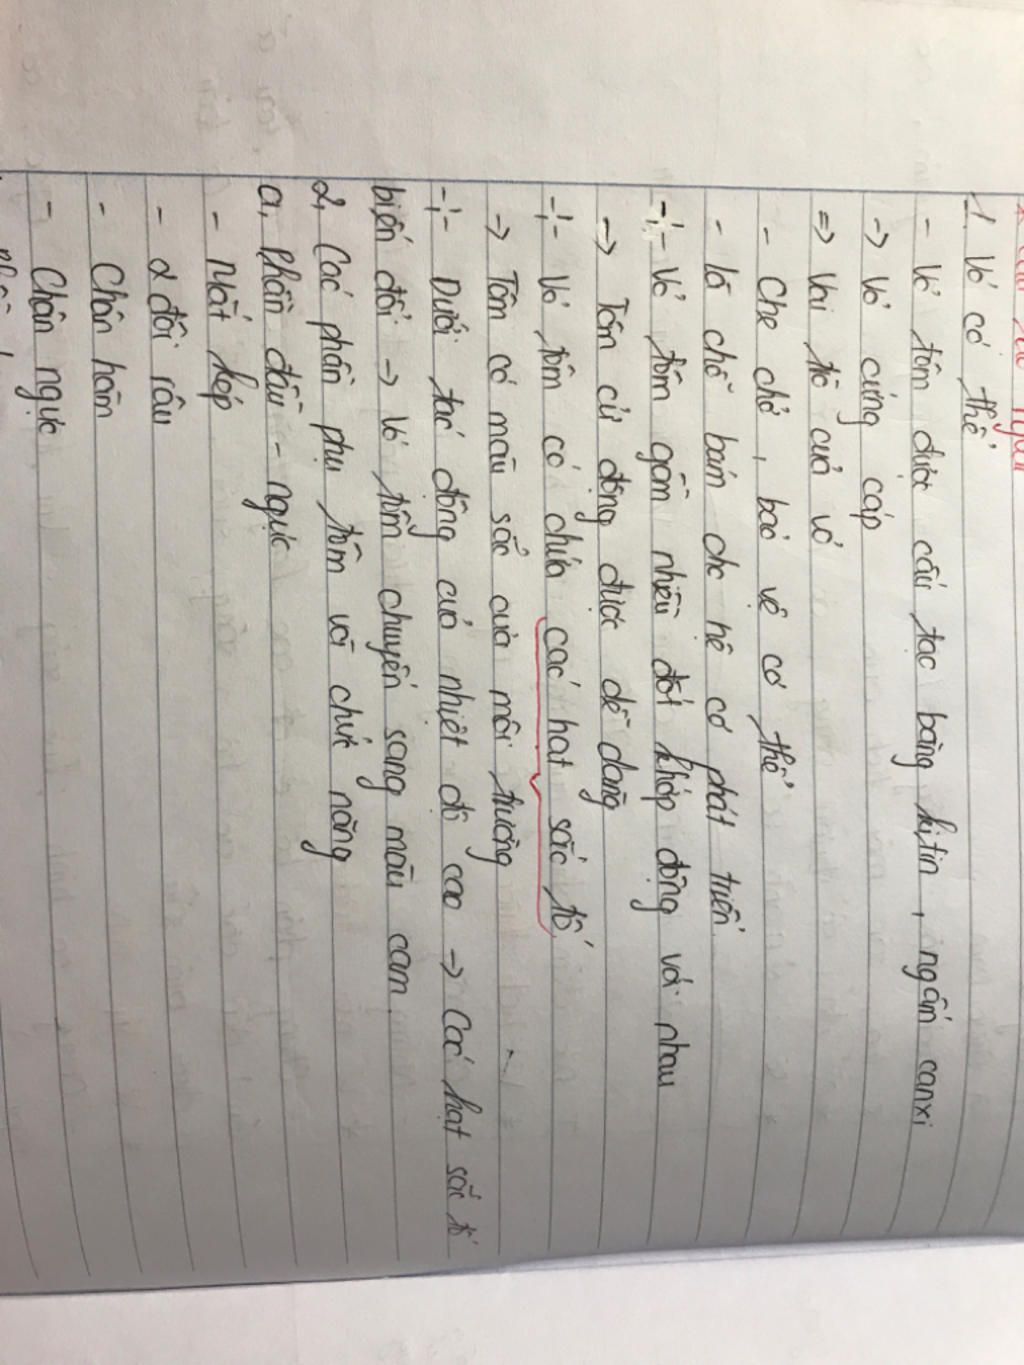 1. Vỏ cơ thể
- Vỏ tôm được cấu tạc bằng kitin, ngấm canxi
-> Vỏ cứng cáp
=> Vai tò của vỏ
- Che chở, bảo vệ cơ thể
- là chỗ bám cho hệ cơ phát triển
-:- Vỏ tôm gồm nhiều đốt khớp động với nhau
-> Tôm cử động được dễ dàng
-:- Vỏ tôm có chứa các hạt sắc tố
-> Tôm có màu sắc của môi trường
-:- Dưới tác động của nhiệt độ cao -> Các hạt sắc tố
biến đổi -> Vỏ tôm chuyển sang màu cam
2, Các phần phụ tôm và chức năng
a, Phần đầu - ngực
- Mắt kép
- 2 đôi râu
- Chân hàm
- Chân ngực